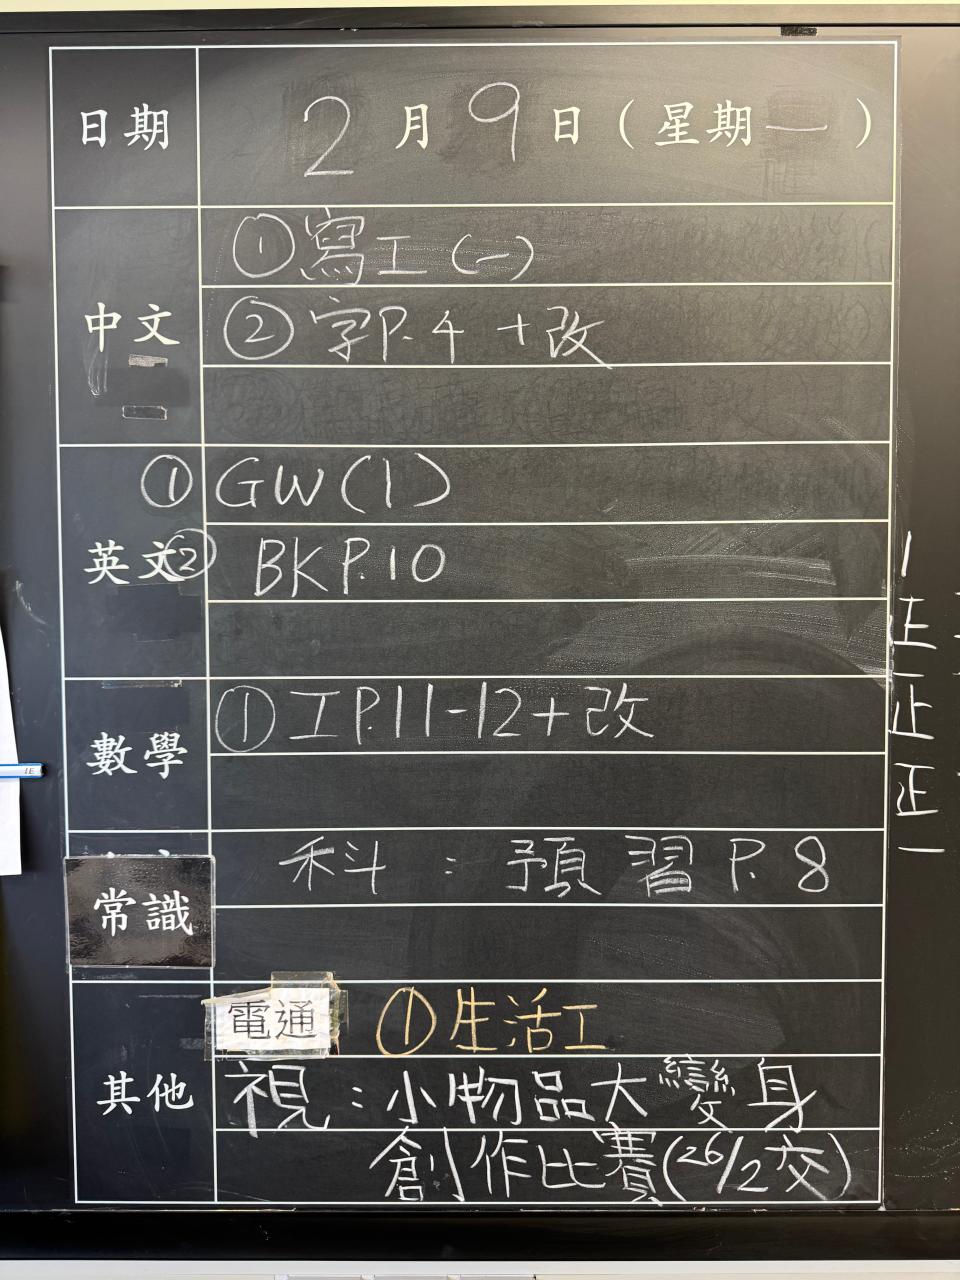 日期 2月9日(星期一)
中文
①寫工(一)
②字P.4 +改
英文
①GW(1)
②BK P.10
數學
①工P.11-12+改
常識
科:預習P.8
其他
電通 ①生活工
視:小物品大變身
創作比賽(26/2交)
1
正
正
正
一
IE